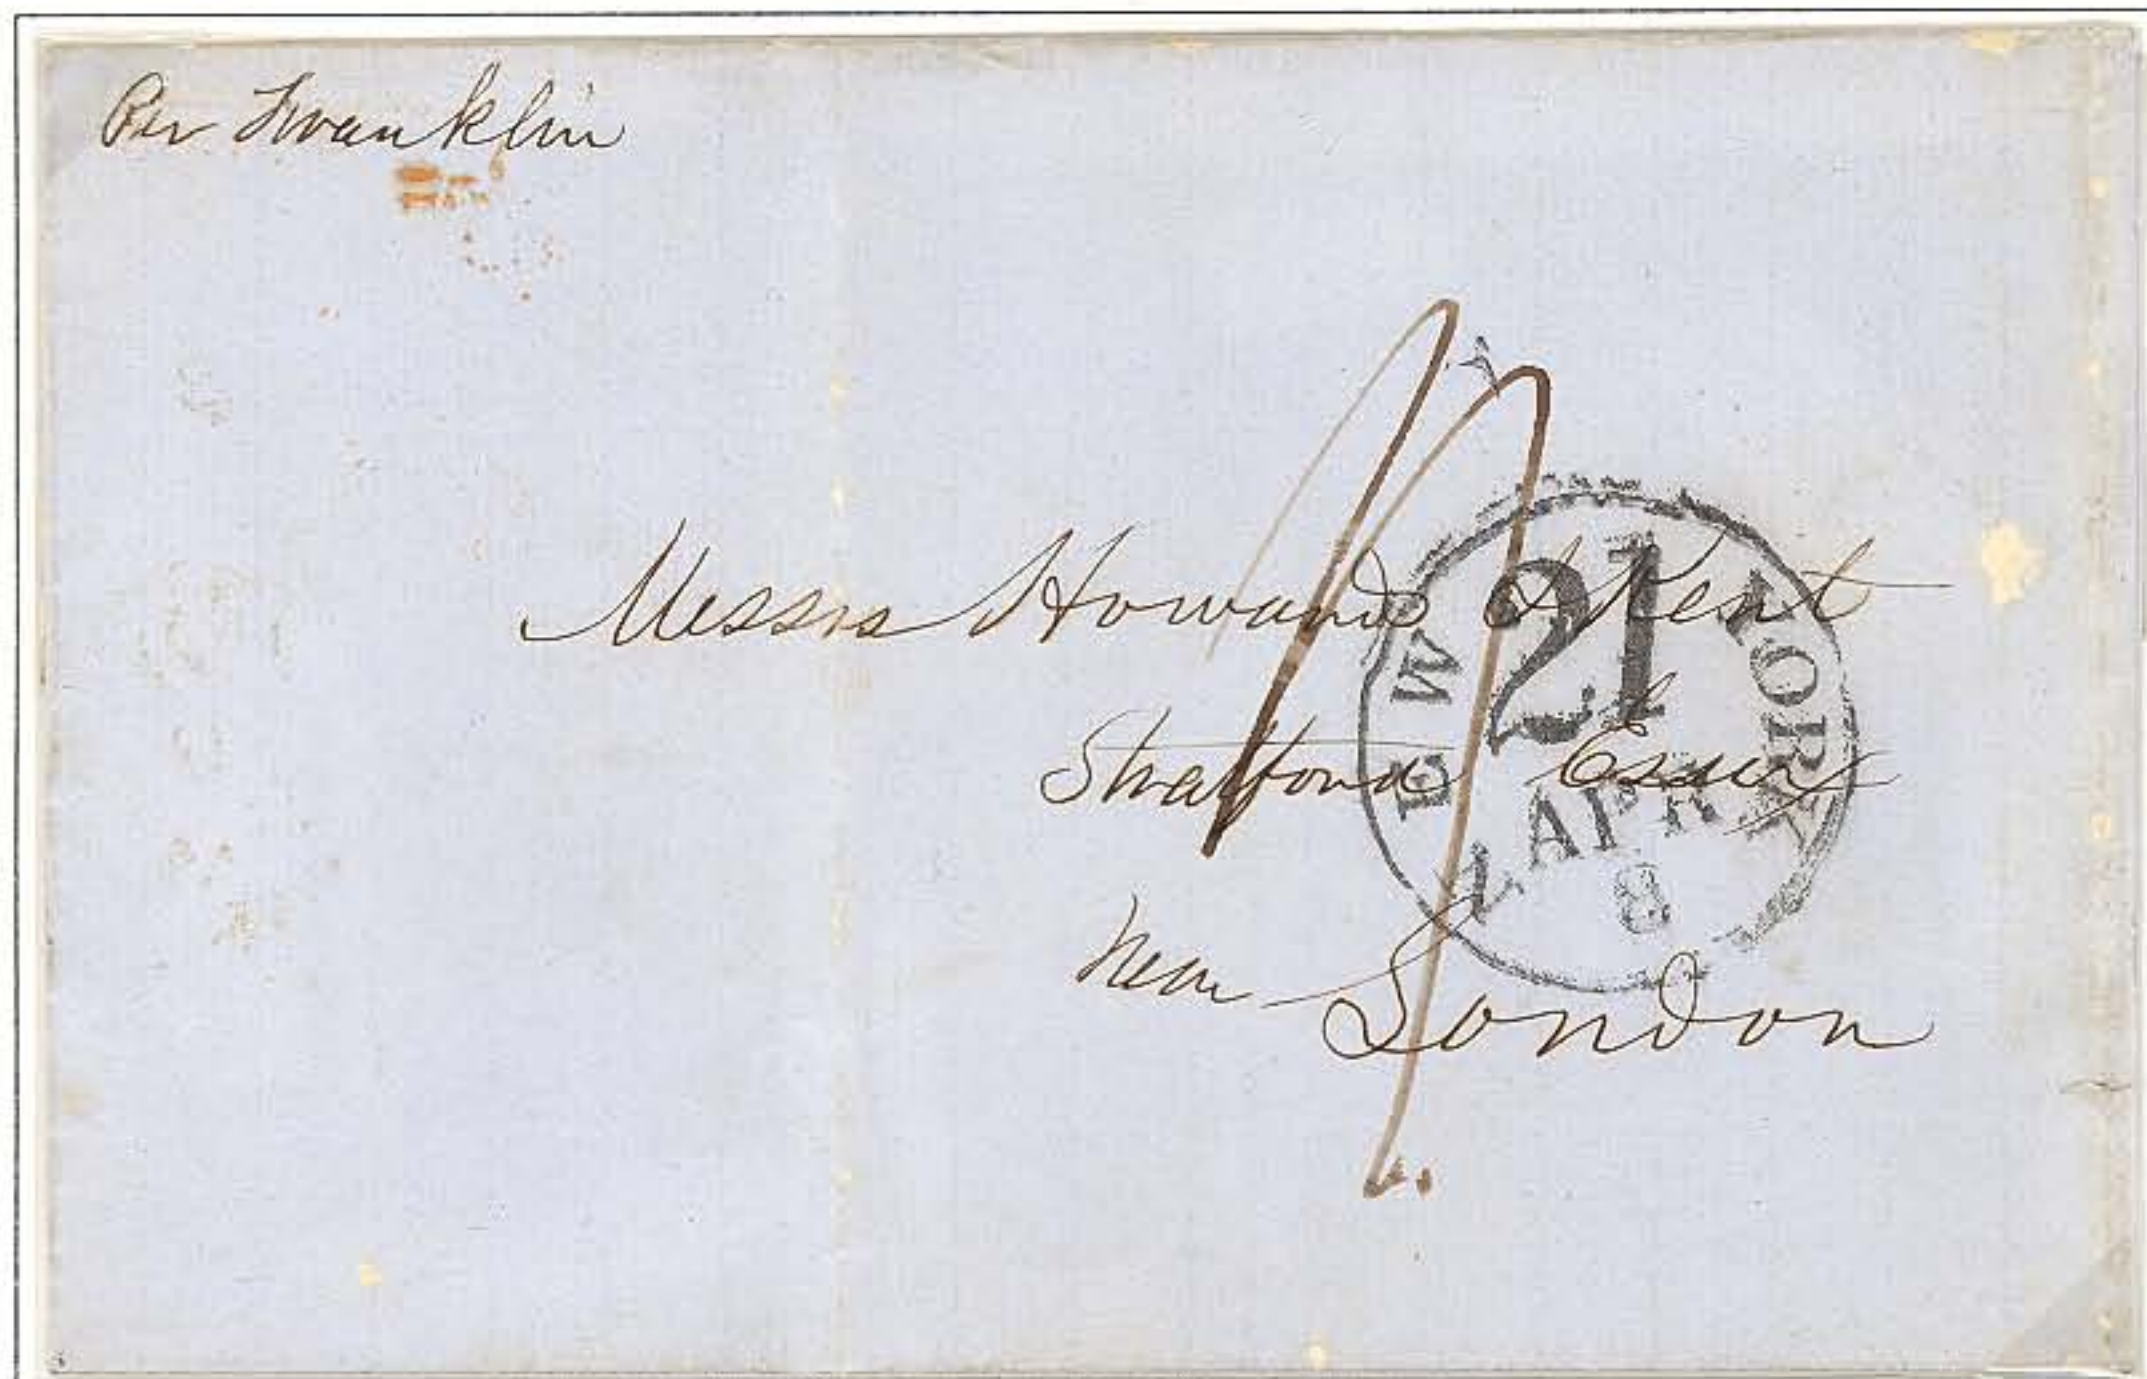 Per Franklin
Messrs Howards & Kent
Stratford Essex
Near London
NEW YORK
21
APR
8
1/